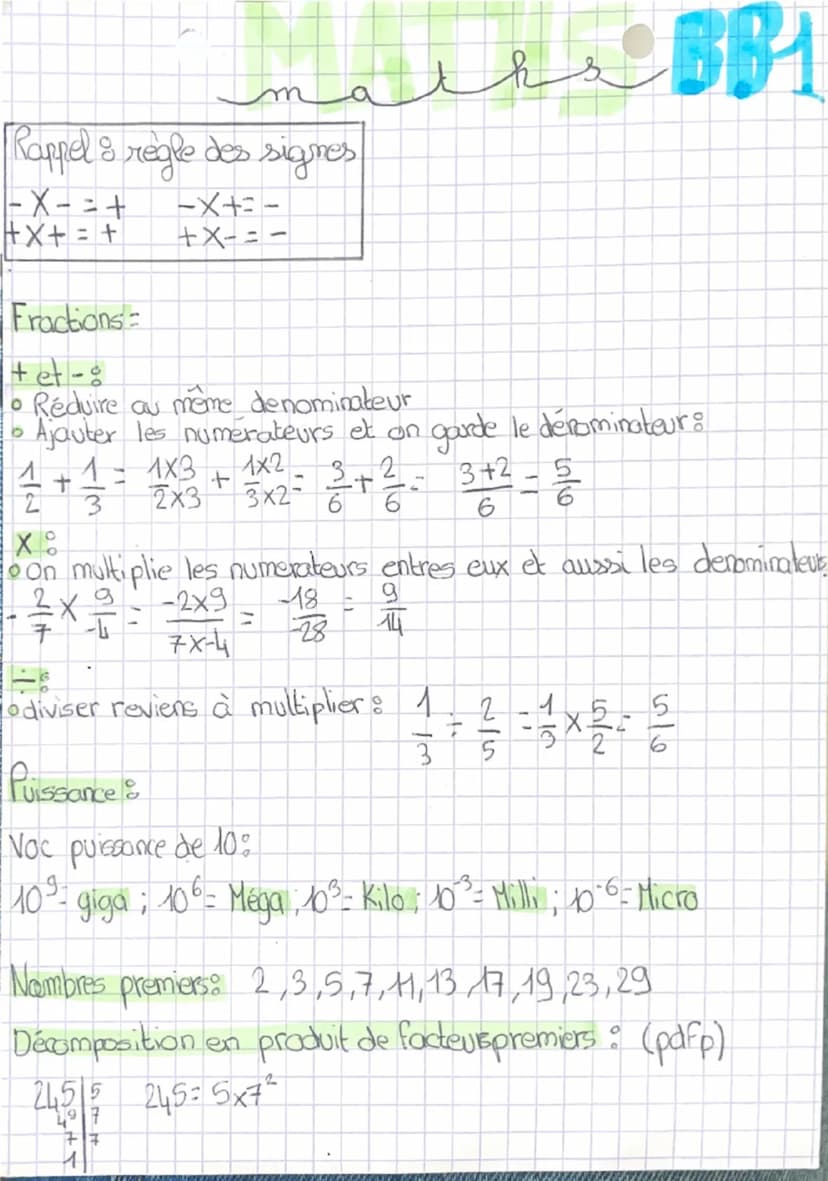 MATHS BB1
maths
Rappel : règle des signes
- X - = + - X + = -
+ X + = + + X - = -
Fractions :
+ et - :
• Réduire au même denominateur
• Ajouter les numerateurs et on garde le dénominateur :
1/2 + 1/3 = 1X3/2X3 + 1X2/3X2 = 3/6 + 2/6 = 3+2/6 = 5/6
X :
• On multiplie les numerateurs entres eux et aussi les denominateurs
- 2/7 X 9/-4 = -2X9/7X-4 = -18/-28 = 9/14
÷ :
• diviser reviens à multiplier : 1/3 ÷ 2/5 = 1/3 X 5/2 = 5/6
Puissance :
Voc puissance de 10 :
10⁹ = giga ; 10⁶ = Méga ; 10³ = Kilo ; 10⁻³ = Milli ; 10⁻⁶ = Micro
Nombres premiers : 2, 3, 5, 7, 11, 13, 17, 19, 23, 29
Décomposition en produit de facteurs premiers : (pdfp)
245 | 5 245 = 5 x 7²
49 | 7
7 | 7
1 |